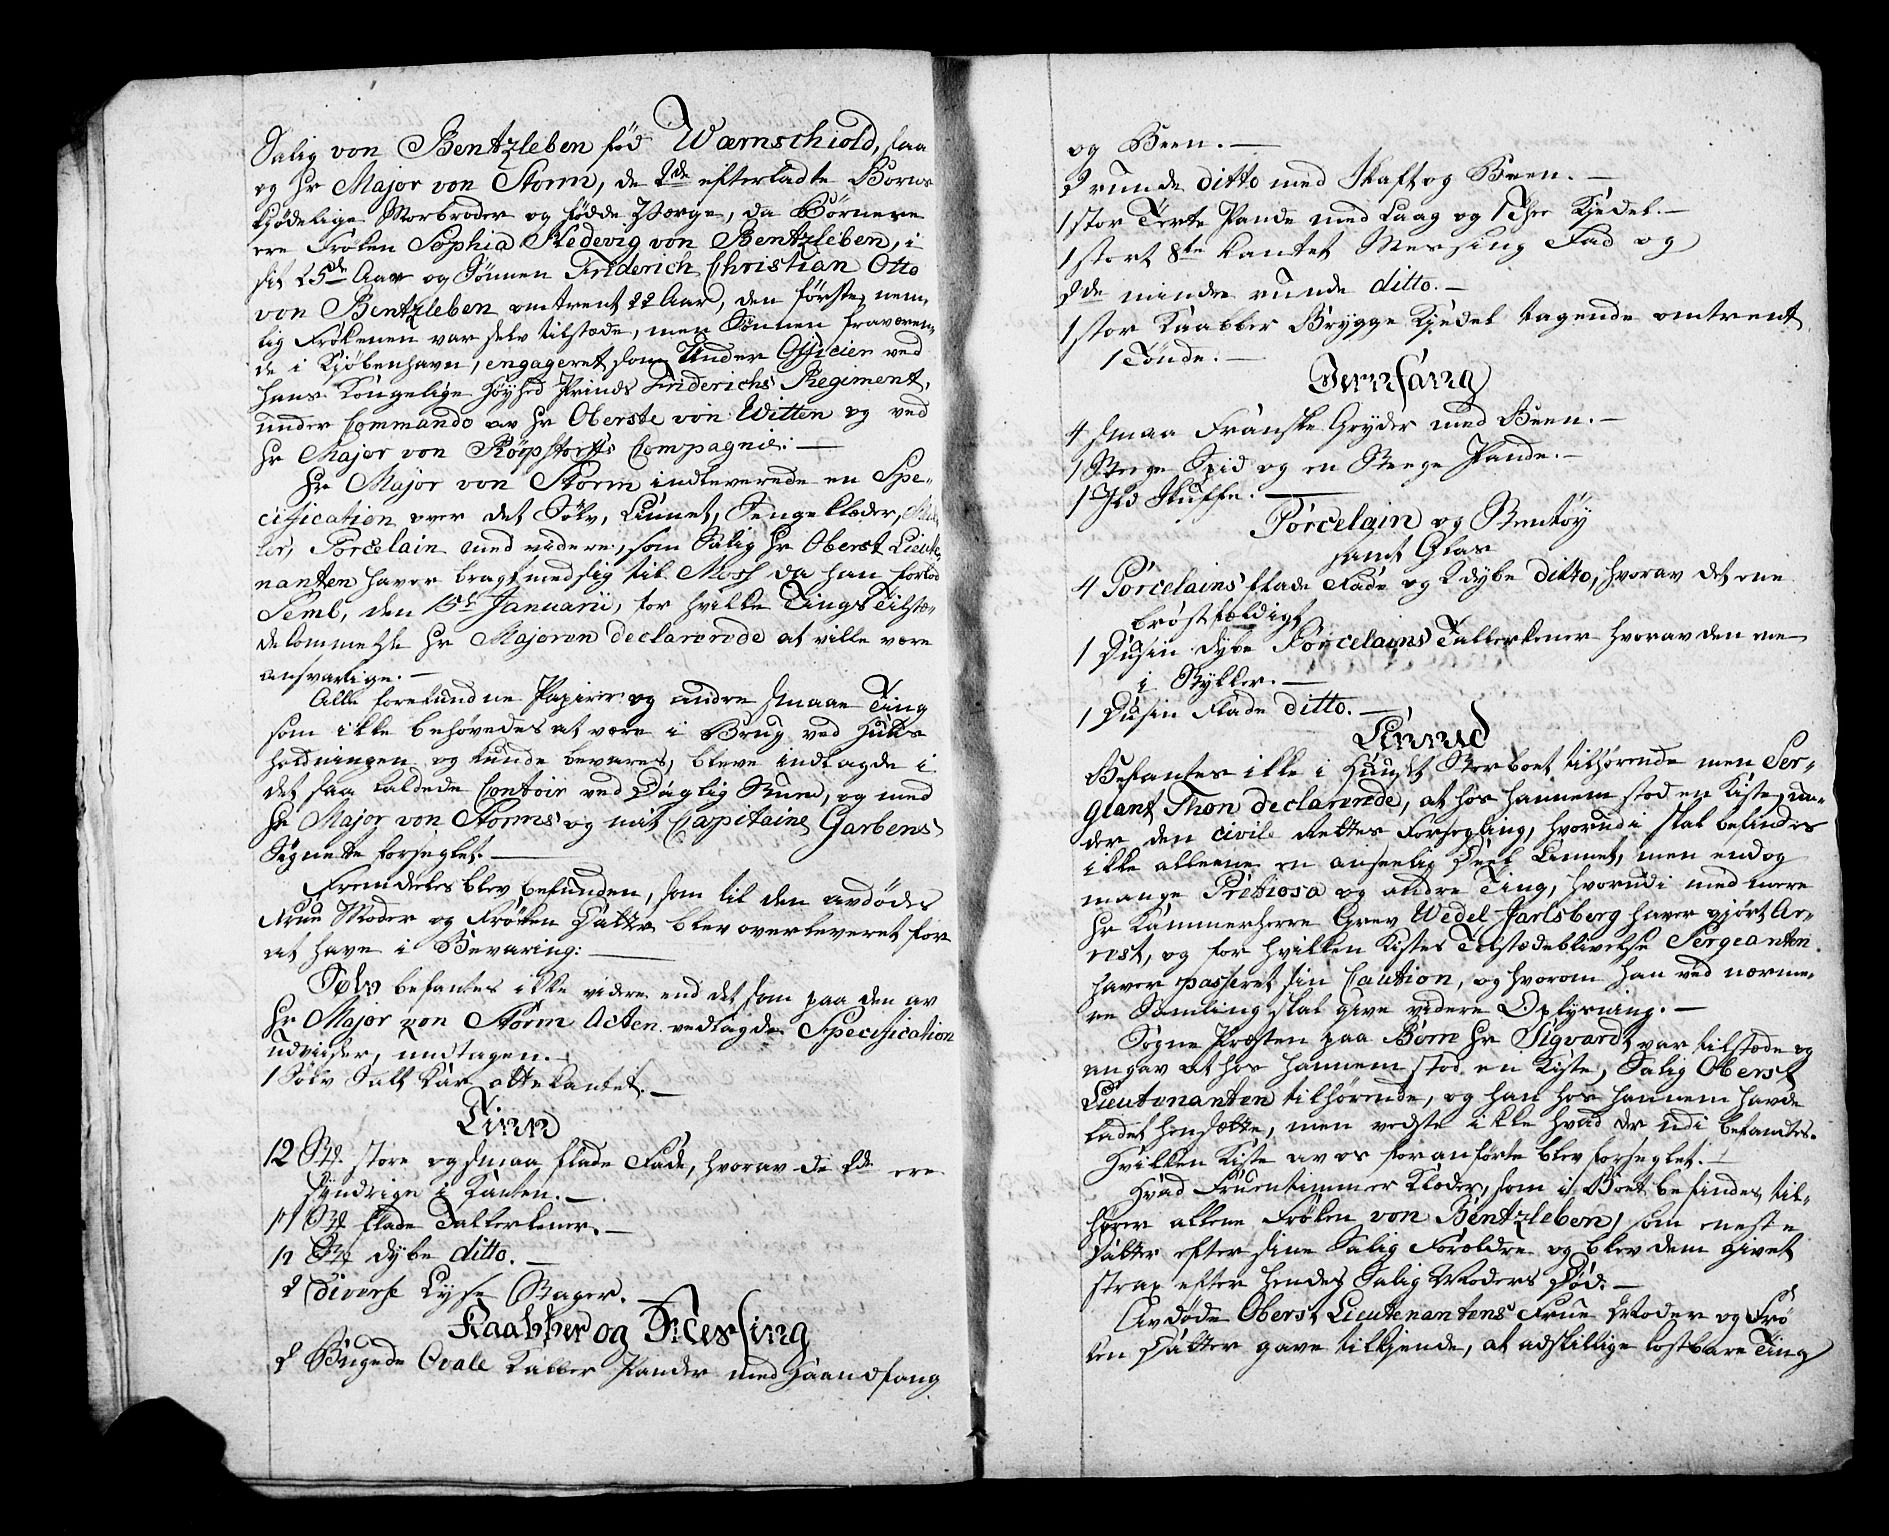 Salig von Bentzleben fød Wærnschiold, saa
og Hr Major von Storm, de 2de efterladte Børns
kjødelige Morbroder og fødde Værge, da Børnene
ere Frøken Sophia Hedevig von Bentzleben, i
sit 25de Aar og Sønnen Friderich Christian Otto
von Bentzleben omtrent 22 Aar, den første, nem-
lig Frøkenen var selv tilstæde, men Sønnen fraværen-
de i Kjøbenhavn, engageret som Under Officier ved
Hans Kongelige Høyhed Prinds Friderichs Regiment,
under Commando av Hr Oberste von Witten og ved
Hr Major von Röepstorffs Compagnie. —
Hr Major von Storm indleverede en Spe-
cification over det Sølv, Linnet, Sengeklæder,
Porcelain med videre, som Salig Hr Oberst Lieute-
nanten haver bragt med sig til Moss da han forlod
Semb, den 15de Januarii, for hvilke Tings Tilstæ-
dekommelse Hr Majoren declarerede at ville være
ansvarlige. —
Alle forefundne Papirer og andre smaae Ting
som ikke behøvedes at være i Brug ved Huus
holdningen og kunde bevares, bleve indlagde i
det saa kaldede Contoir ved Daglig Stuen, og med
Hr Major von Storms og mit Capitaine Garbens
Signette forseglet. —
Fremdeles blev befunden, som til den avdødes
Frue Moder og Frøken Datter blev overleveret for
at have i Bevaring: —
Sølv befantes ikke videre end det som paa den av
Hr Major von Storm Acten vedlagde Specification
Udviiser, undtagen. —
1 Sølv Salt Kar ottekantet. —
Tinn
12 St. store og smaa flade Fade, hvorav de 2de ere
syndrige i Kanten. —
11 St flade Tallerkener. —
12 St dybe ditto. —
2 Diverse Lyse Stager. —
Kaabber og Messing
2 Bugede Ovale Kabber Pander med Haandfang
og Been. —
2 runde ditto med Skaft og Been. —
1 stor Terte Pande med Laag og 1 Thee Kjedel. —
1 stort 8te kantet Messing Fad og
2de mindre runde ditto. —
1 stor Kaabber Brygge Kjedel tagende omtrent
1 Tønde. —
Jernfang
4 smaa Franske Gryder med Been. —
1 Stege Spid og en Stege Pande. —
1 Ild Skuffe. —
Porcelain og Stentøy
samt Glas
4 Porcelains flade Fade og 2 dybe ditto, hvorav det ene
brøstfeldigt
1 Dusin dybe Porcelains Tallerkener hvorav den ene
i Stykker. —
1 Dusin Flade ditto. —
Linned
Befantes ikke i Huuset Sterboet tilhørende men Ser-
giant Thon declarerede, at hos hannem stod en Kiste un-
der den civile Rettes Forsegling, hvorudi skal befindes
ikke alleene en anseelig Deel Linnet, men endog
mange Pretiosa og andre Ting, hvorudi med mere
Hr Kammerherre Grev Wedel-Jarlsberg haver gjort Ar-
rest, og for hvilken Kistes Tilstædeblivelse Sergeanten
haver passeret sin Caution, og hvorom han ved nærme-
re Samling skal give videre Oplysning. —
Sogne Præsten paa Børn Hr Sigvardt var tilstæde og
angav at hos hannem stod en Kiste, Salig Oberst
Lieutenanten tilhørende, og han hos hannem havde
ladet hensætte, men vedste ikke hvad der udi befandtes.
Hvilken Kiste av os foranførte blev forseglet. —
Hvad Fruentimmer Klæder, som i Boet befindes, til-
hører allene Frøken von Bentzleben, som eneste
Datter efter sine Salig Forældre og blev dem givet
strax efter hendes Salig Moders Død. —
Avdøde Oberst Lieutenantens Frue Moder og Frø
ken Datter gave tilkjende, at adskillige kostbare Ting